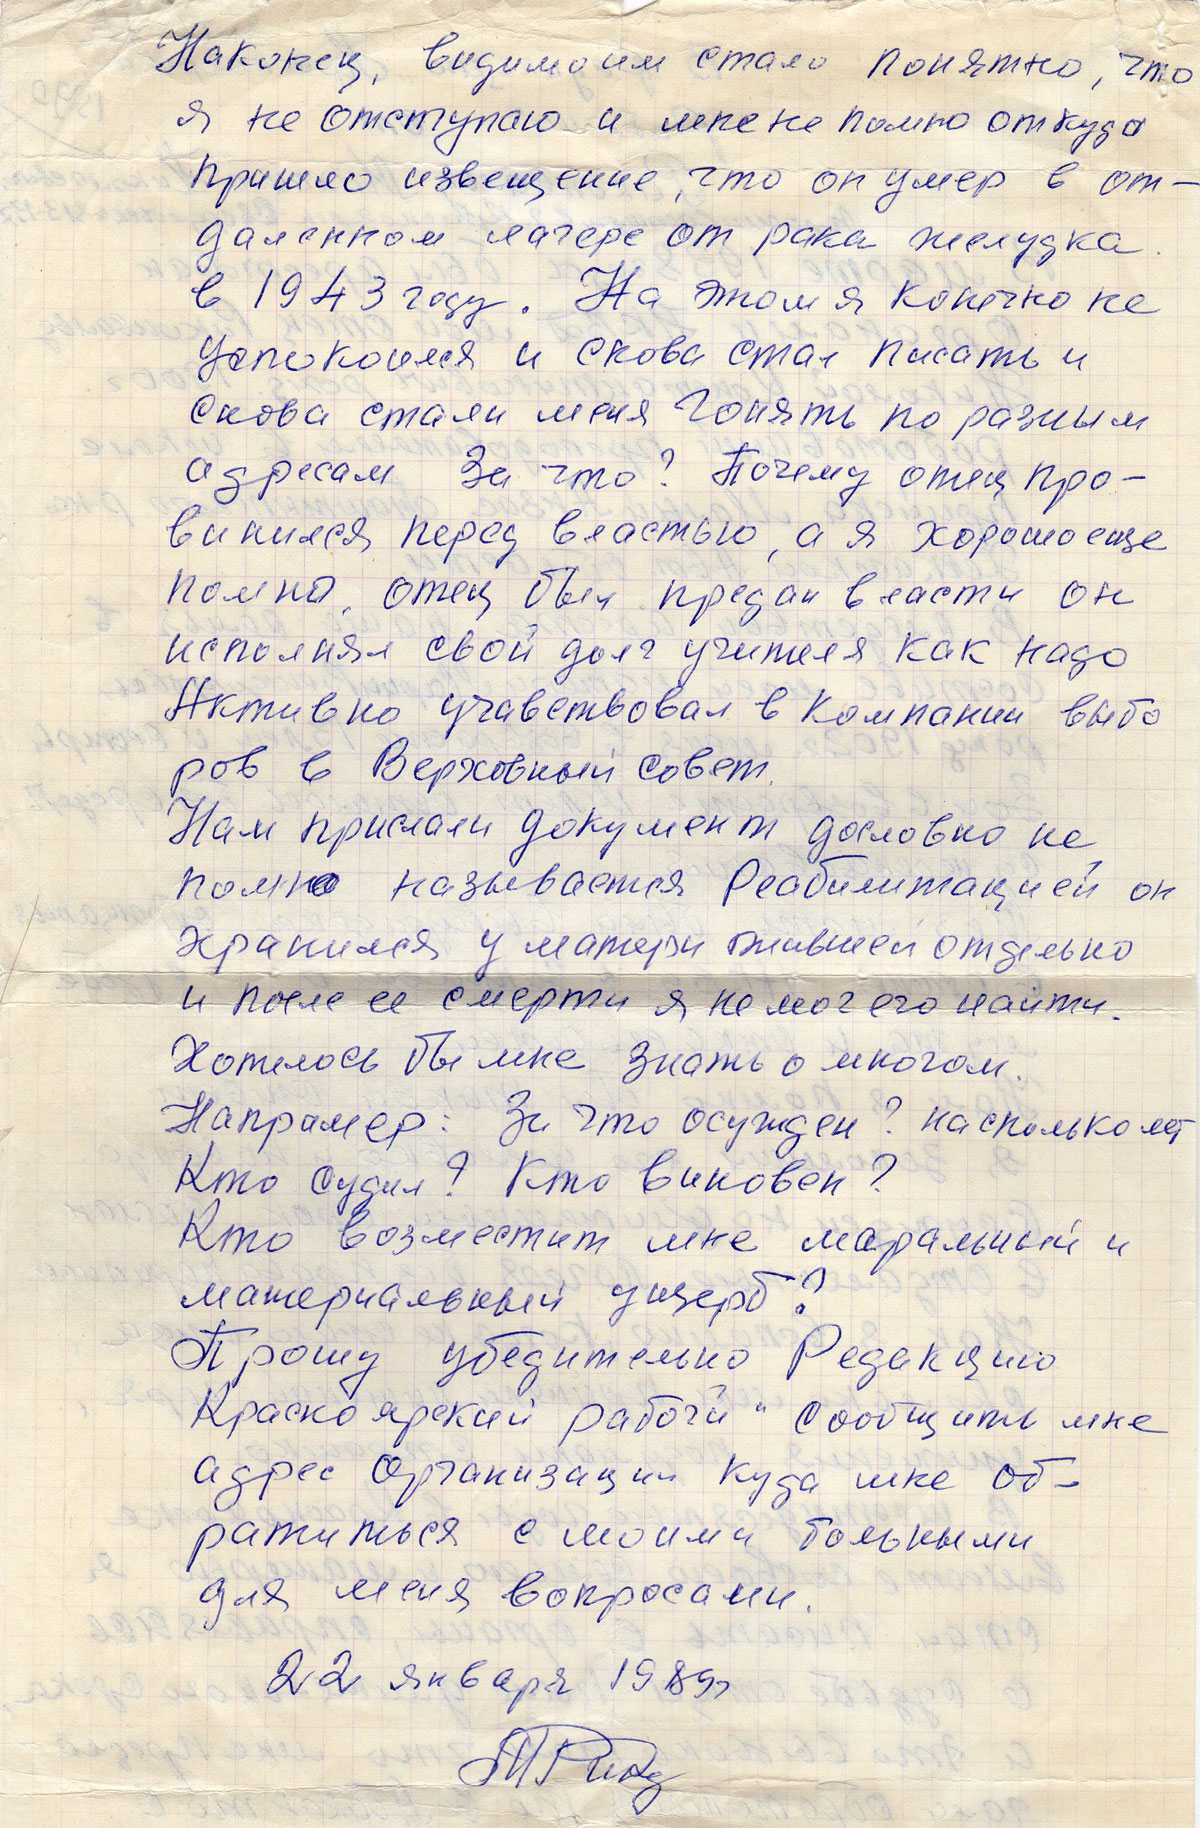 Наконец, видимо им стало понятно, что
я не отступаю и мне не помню откуда
пришло извещение, что он умер в от-
даленном лагере от рака желудка.
в 1943 году. На этом я конечно не
успокоился и снова стал писать и
снова стали меня гонять по разным
адресам За что? Почему отец про-
винился перед властью, а я хорошо еще
помню, отец был предан власти он
исполнял свой долг учителя как надо
Активно учавствовал в компании выбо
ров в Верховный совет.
Нам прислали документ дословно не
помню называется Реабилитацией он
хранился у матери жившей отдельно
и после ее смерти я не мог его найти.
Хотелось бы мне знать о многом.
Например: За что осужден? насколько лет
Кто судил? Кто виновен?
Кто возместит мне моральный и
материальный ущерб?
Прошу убедительно Редакцию
Красноярский рабочий" сообщить мне
адрес организации куда мне об-
ратиться с моими больными
для меня вопросами.
22 января 1989г